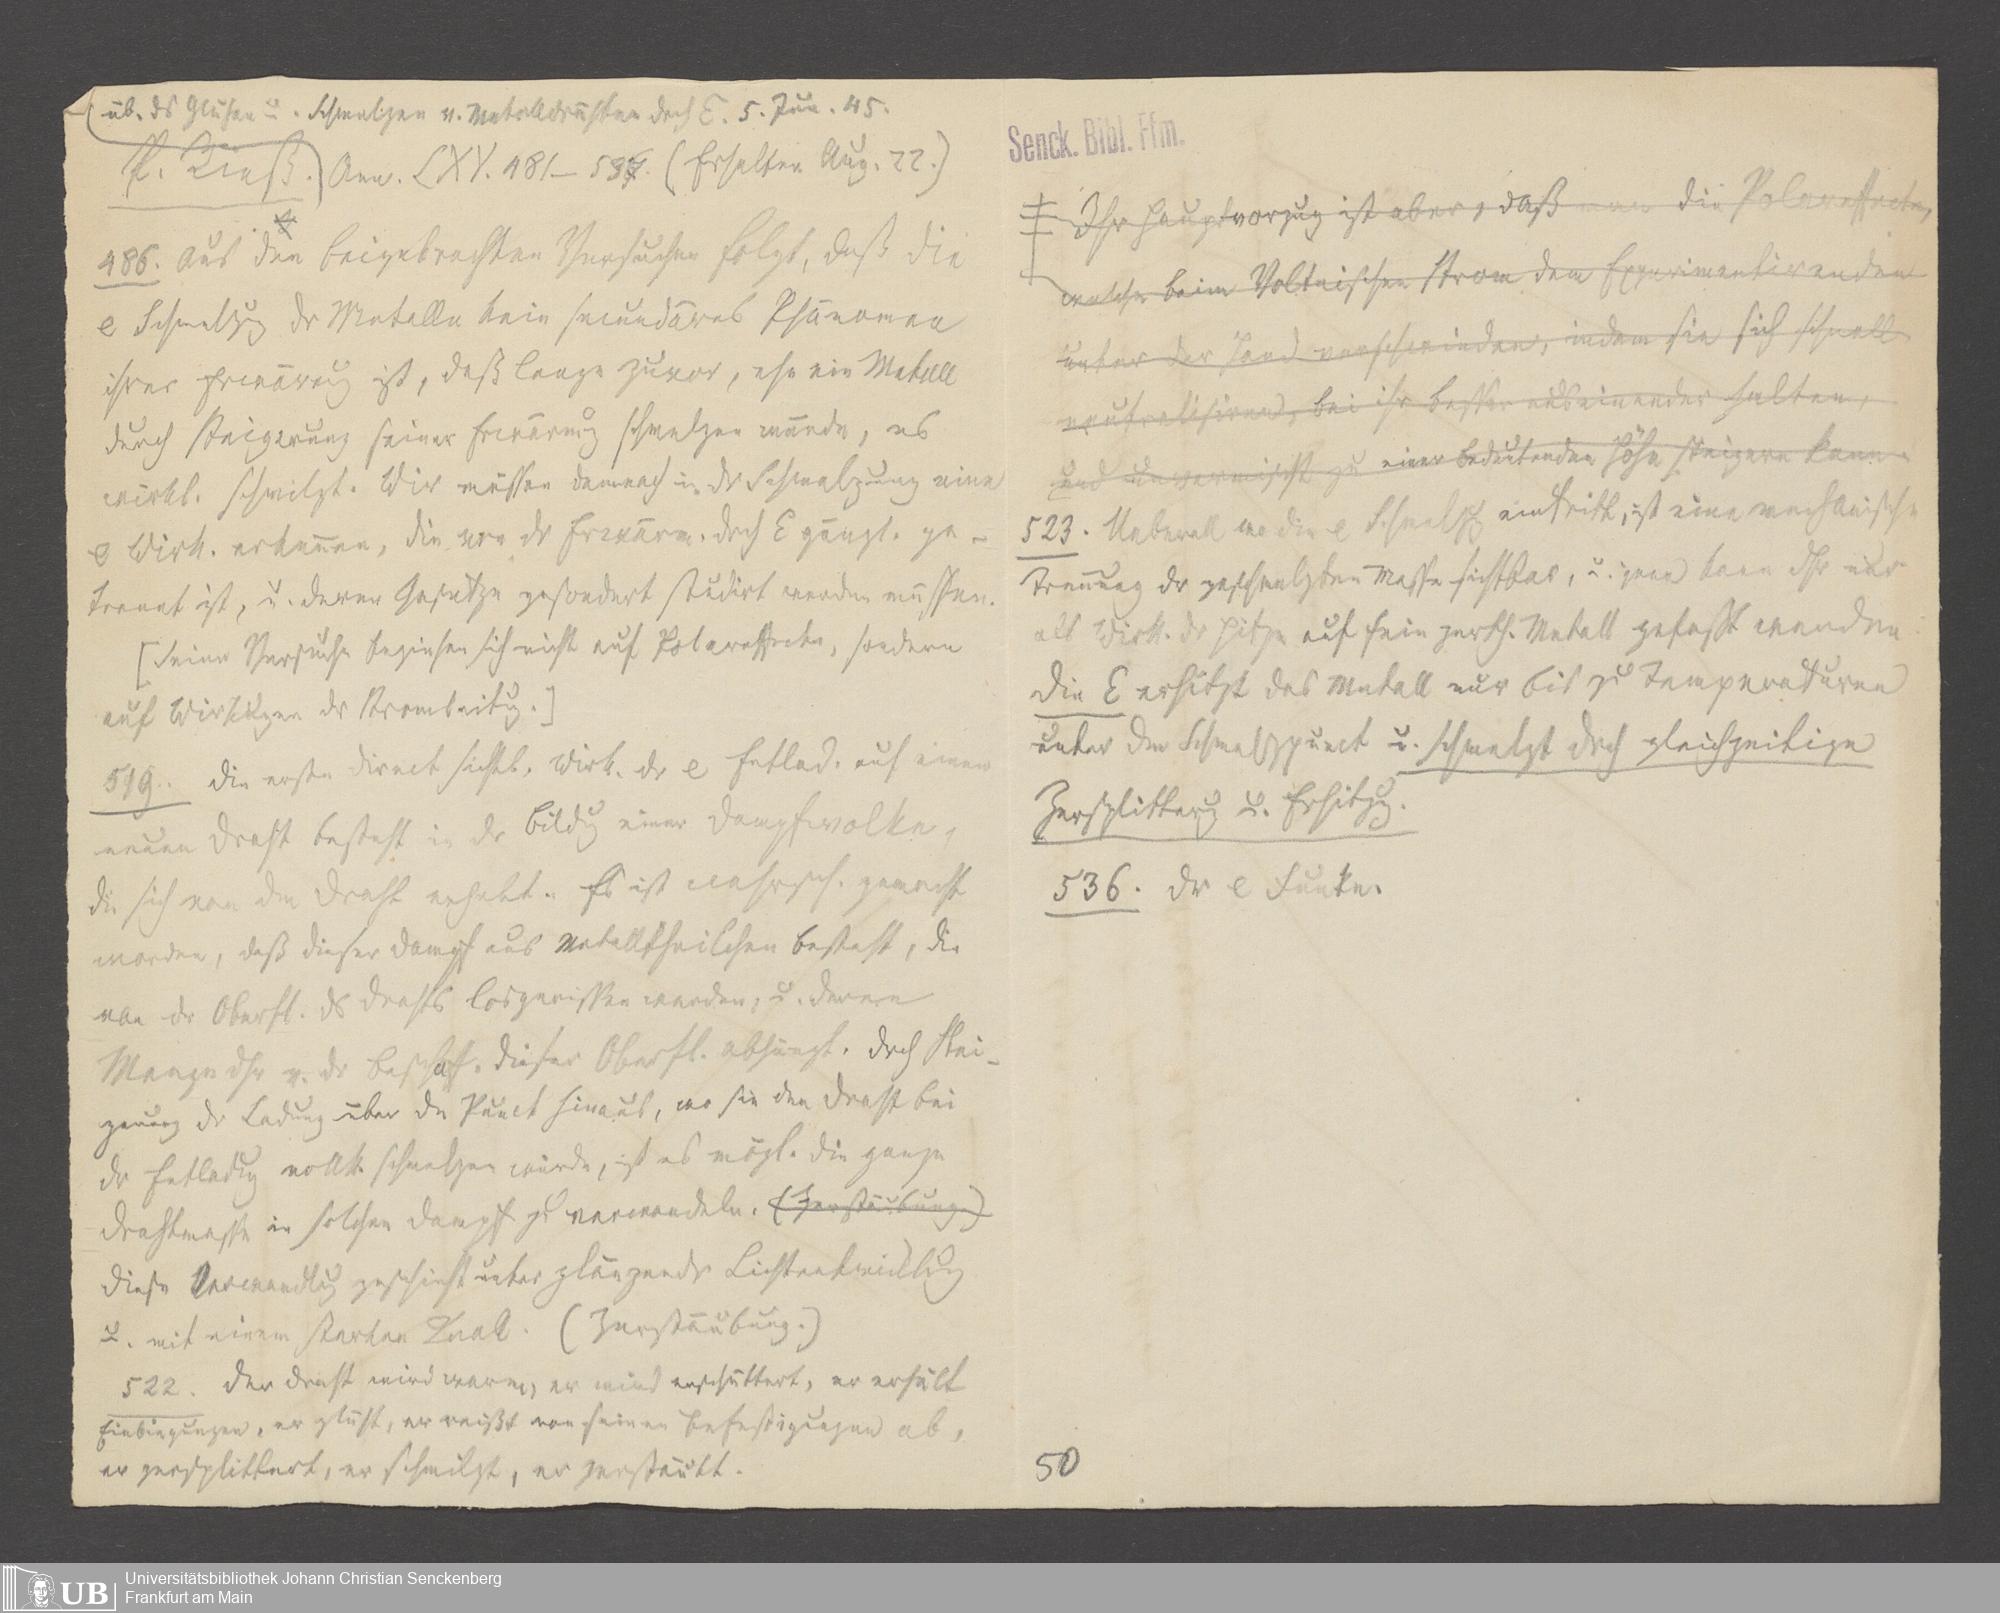 (üb. ds Glühen u. Schmelzen v. Metalldrähten dch E. 5. Jun. 45.
P. Rieß.) Ann. LXV. 481–537. (Erhalten Aug. 22.)
486. Aus den beigebrachten Versuchen folgt, daß die
e Schmelzg dr Metalle kein secundäres Phänomen
ihrer Erwärmg ist, daß lange zuvor, ehe ein Metall
durch Steigerung seiner Erwärmg schmelzen würde, es
wirkl. schmilzt. Wir müssen demnach in dr Schmelzung eine
e Wirk. erkennen, die von dr Erwärm. dch E gänzl. ge-
trennt ist, u. deren Gesetze gesondert studirt werden müssen.
[Seine Versuche beziehen sich nicht auf Polareffecte, sondern
auf Wirkgen dr Stromleitg.]
519. Die erste direct sichtb. Wirk. dr e Entlad. auf einen
neuen Draht besteht in dr Bildg einer Dampfwolke,
die sich von dem Draht erhebt. Es ist wahrsch. gemacht
worden, daß dieser Dampf aus Metalltheilchen besteht, die
von dr Oberfl. ds Drahts losgerissen werden, u. deren
Menge dhr v. dr Beschaff. dieser Oberfl. abhängt. Dch Stei-
gerung dr Ladung über den Punct hinaus, wo sie den Draht bei
dr Entladg vollk. schmelzen würde, ist es mögl. die ganze
Drahtmasse in solchen Dampf zu verwandeln. (Zerstäubung.)
Diese Verwandlg geschieht unter glänzender Lichtentwicklug
u. mit einem starken Knall. (Zerstäubung.)
522. Der Draht wird warm, er wird erschüttert, er erhält
Einbiegungen, er glüht, er reißt von seinen Befestigungen ab,
er zersplittert, er schmilzt, er zerstäubt.
Senck. Bibl. Ffm.
Ihr Hauptvorzug ist aber, daß man die Polareffecte,
welche beim Voltaischen Strom dem Experimentirenden
unter der Hand verschwinden, indem sie sich schnell
neutralisiren, bei ihr besser auseinander halten,
und unvermischt zu einer bedeutenden Höhe steigern kann.
523. Ueberall wo die e Schmelzg eintritt, ist eine mechanische
Trennung dr geschmelzten Masse sichtbar, u. jene kann dhr nur
als Wirk. dr Hitze auf fein zerth. Metall gefasst werden.
Die E erhitzt das Metall nur bis zu Temperaturen
unter dem Schmelzpunct u. schmelzt dch gleichzeitige
Zersplitterg u. Erhitzg.
536. Dr e Funke.
50
UB
Universitätsbibliothek Johann Christian Senckenberg
Frankfurt am Main